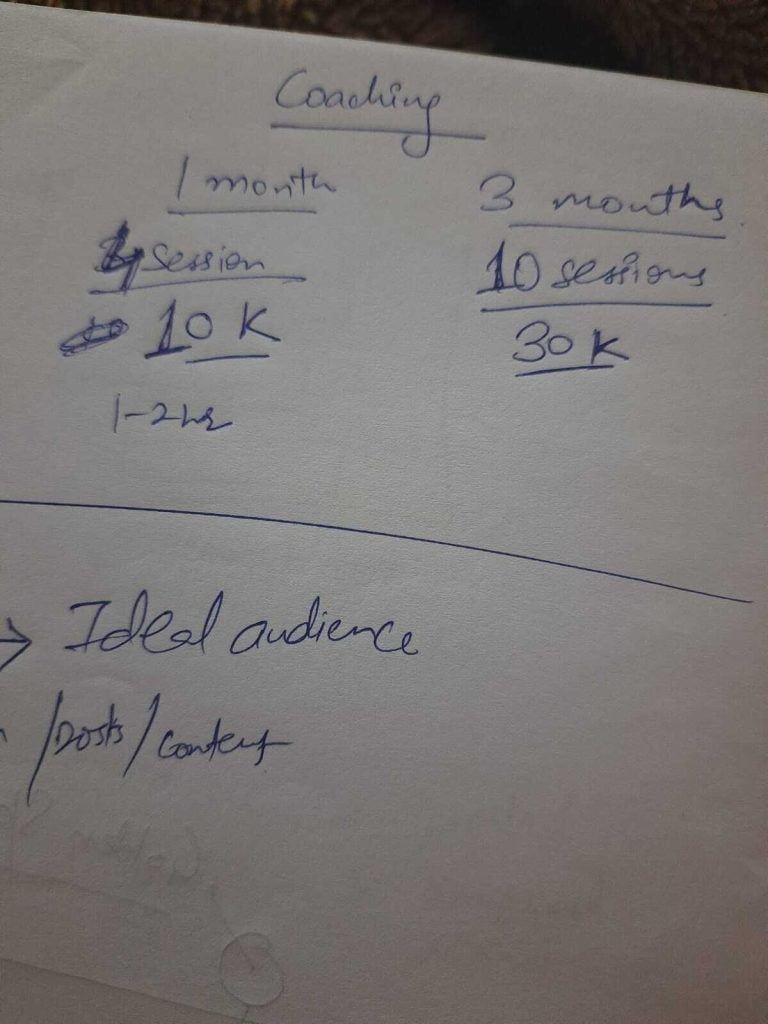 Coaching
1 month
4 session
10 K
1-2 hr
3 months
10 sessions
30 K
→ Ideal audience
/posts/content